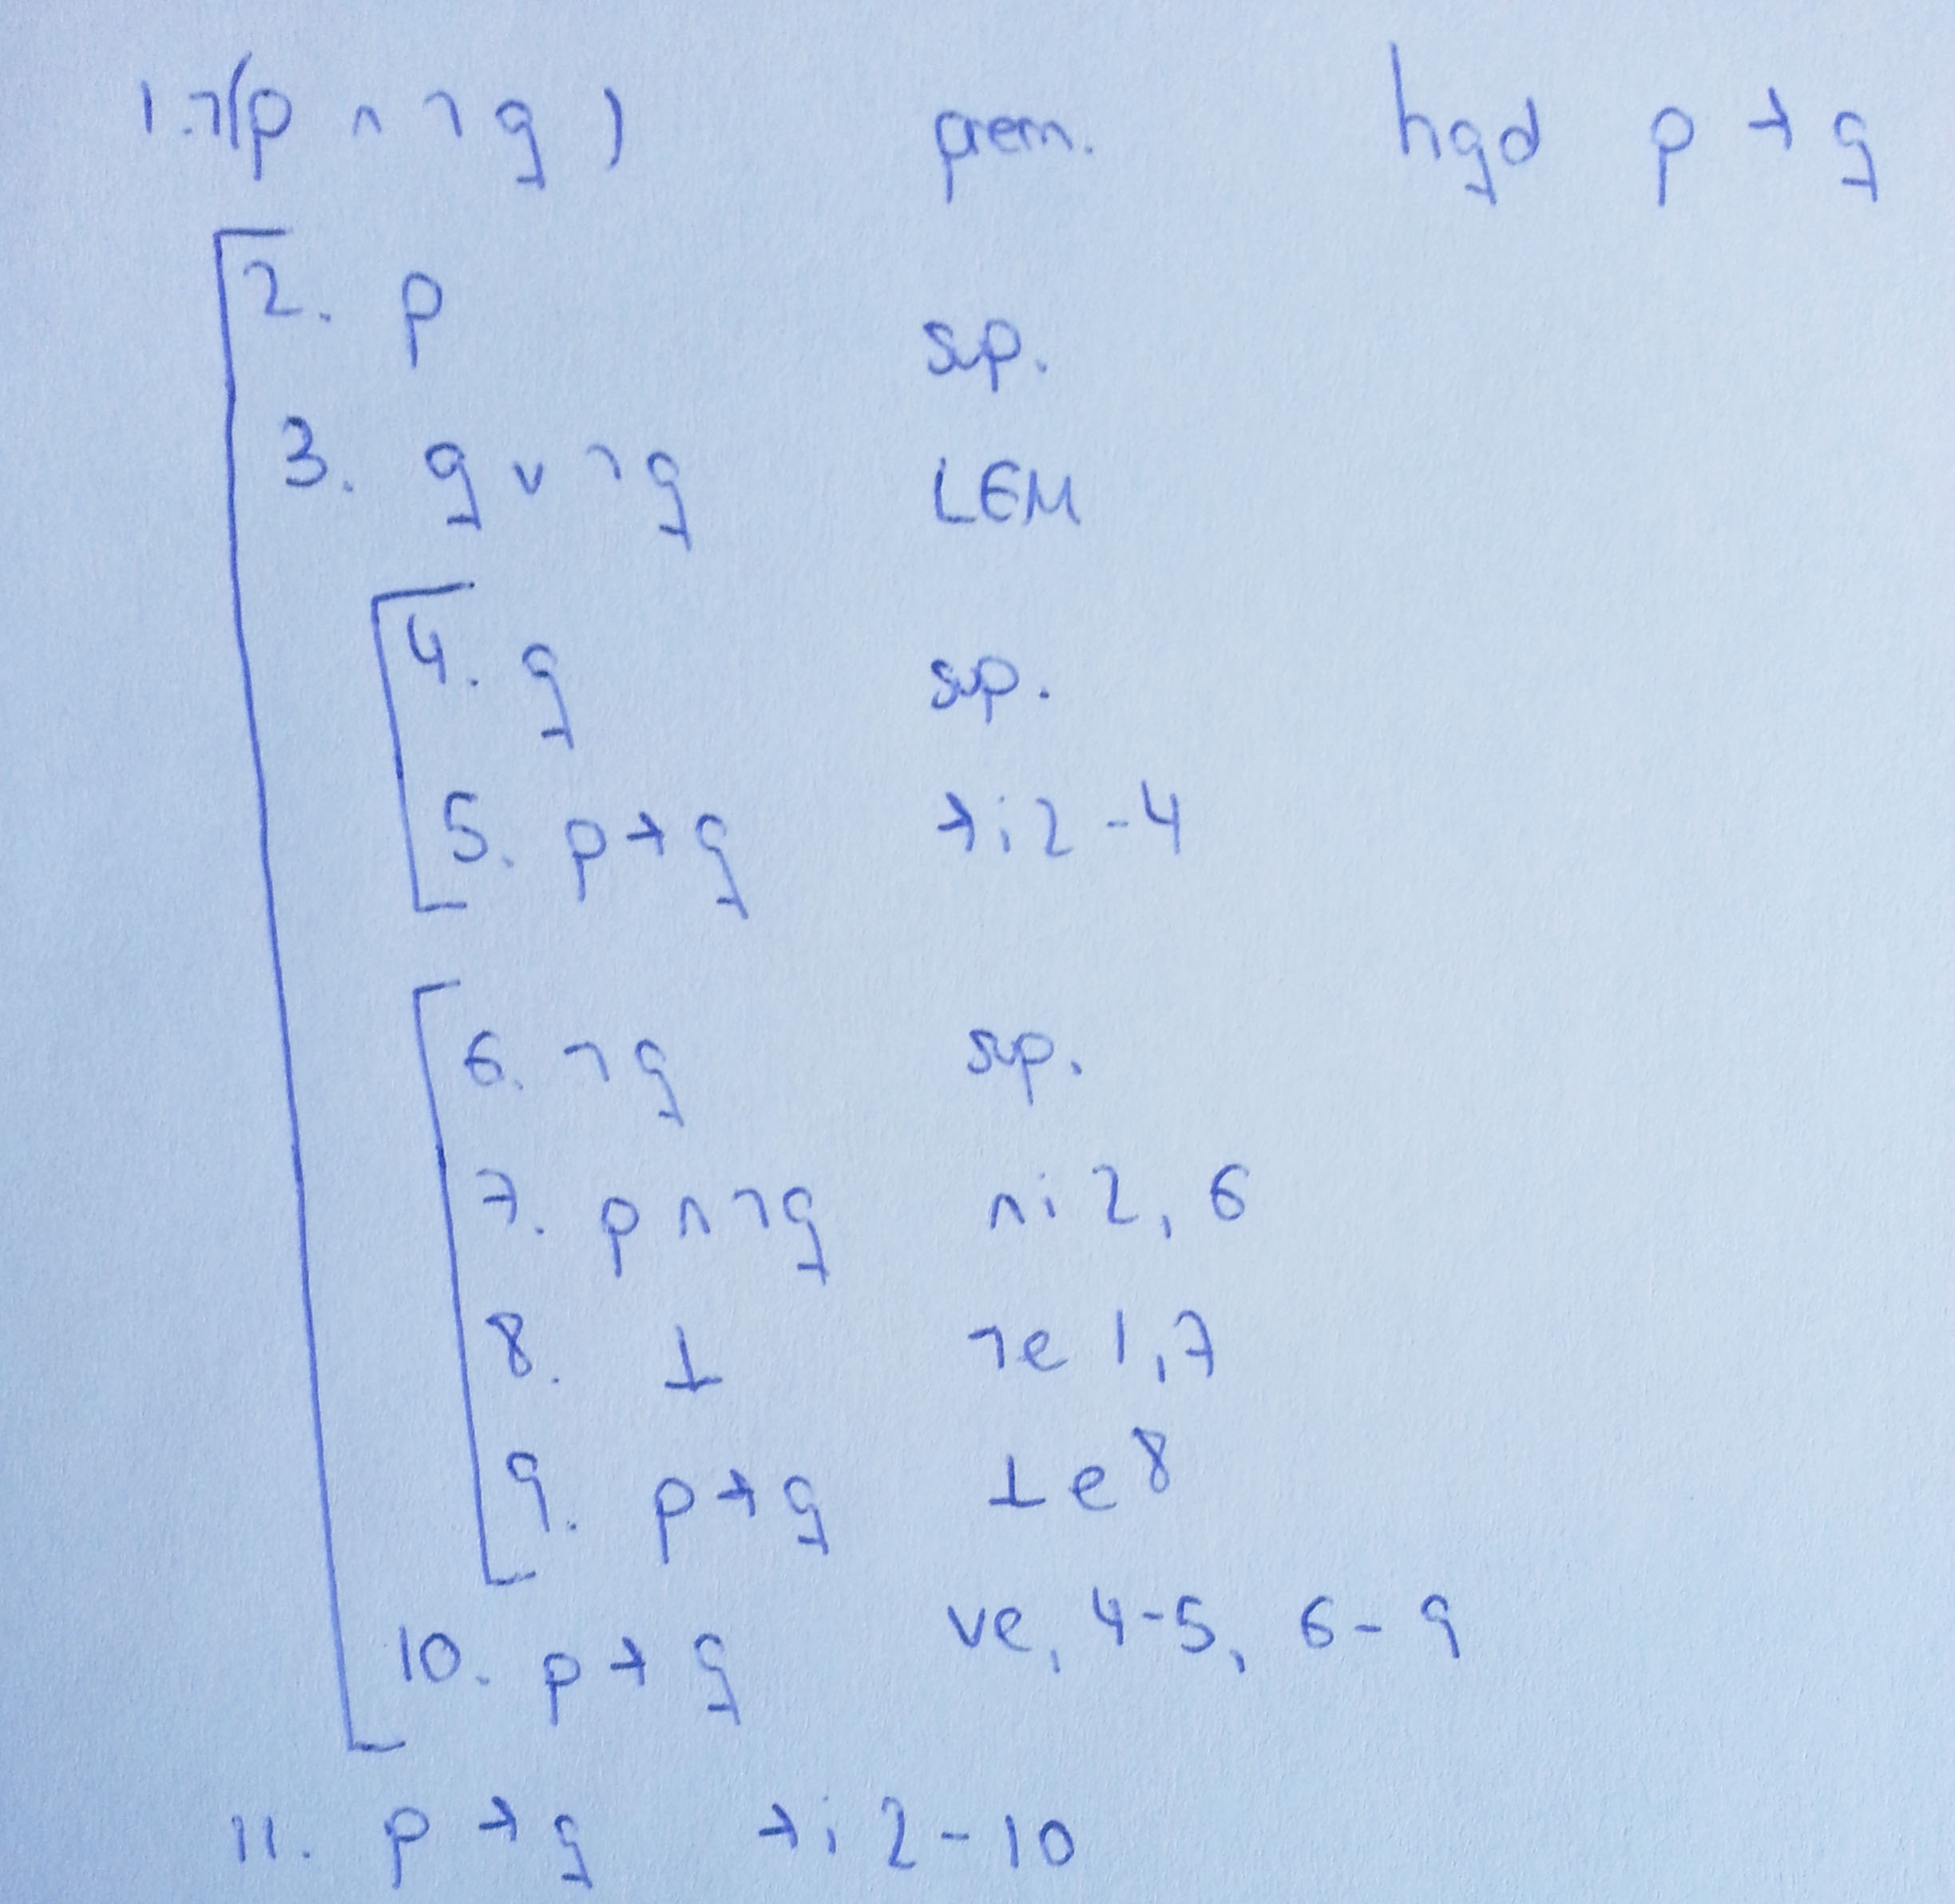 1. ¬(p ∧ ¬q) prem. hgd p → q
2. p sup.
3. q ∨ ¬q LEM
4. q sup.
5. p → q →i 2-4
6. ¬q sup.
7. p ∧ ¬q ∧i 2, 6
8. ⊥ ¬e 1,7
9. p → q ⊥e 8
10. p → q ∨e, 4-5, 6-9
11. p → q →i 2-10